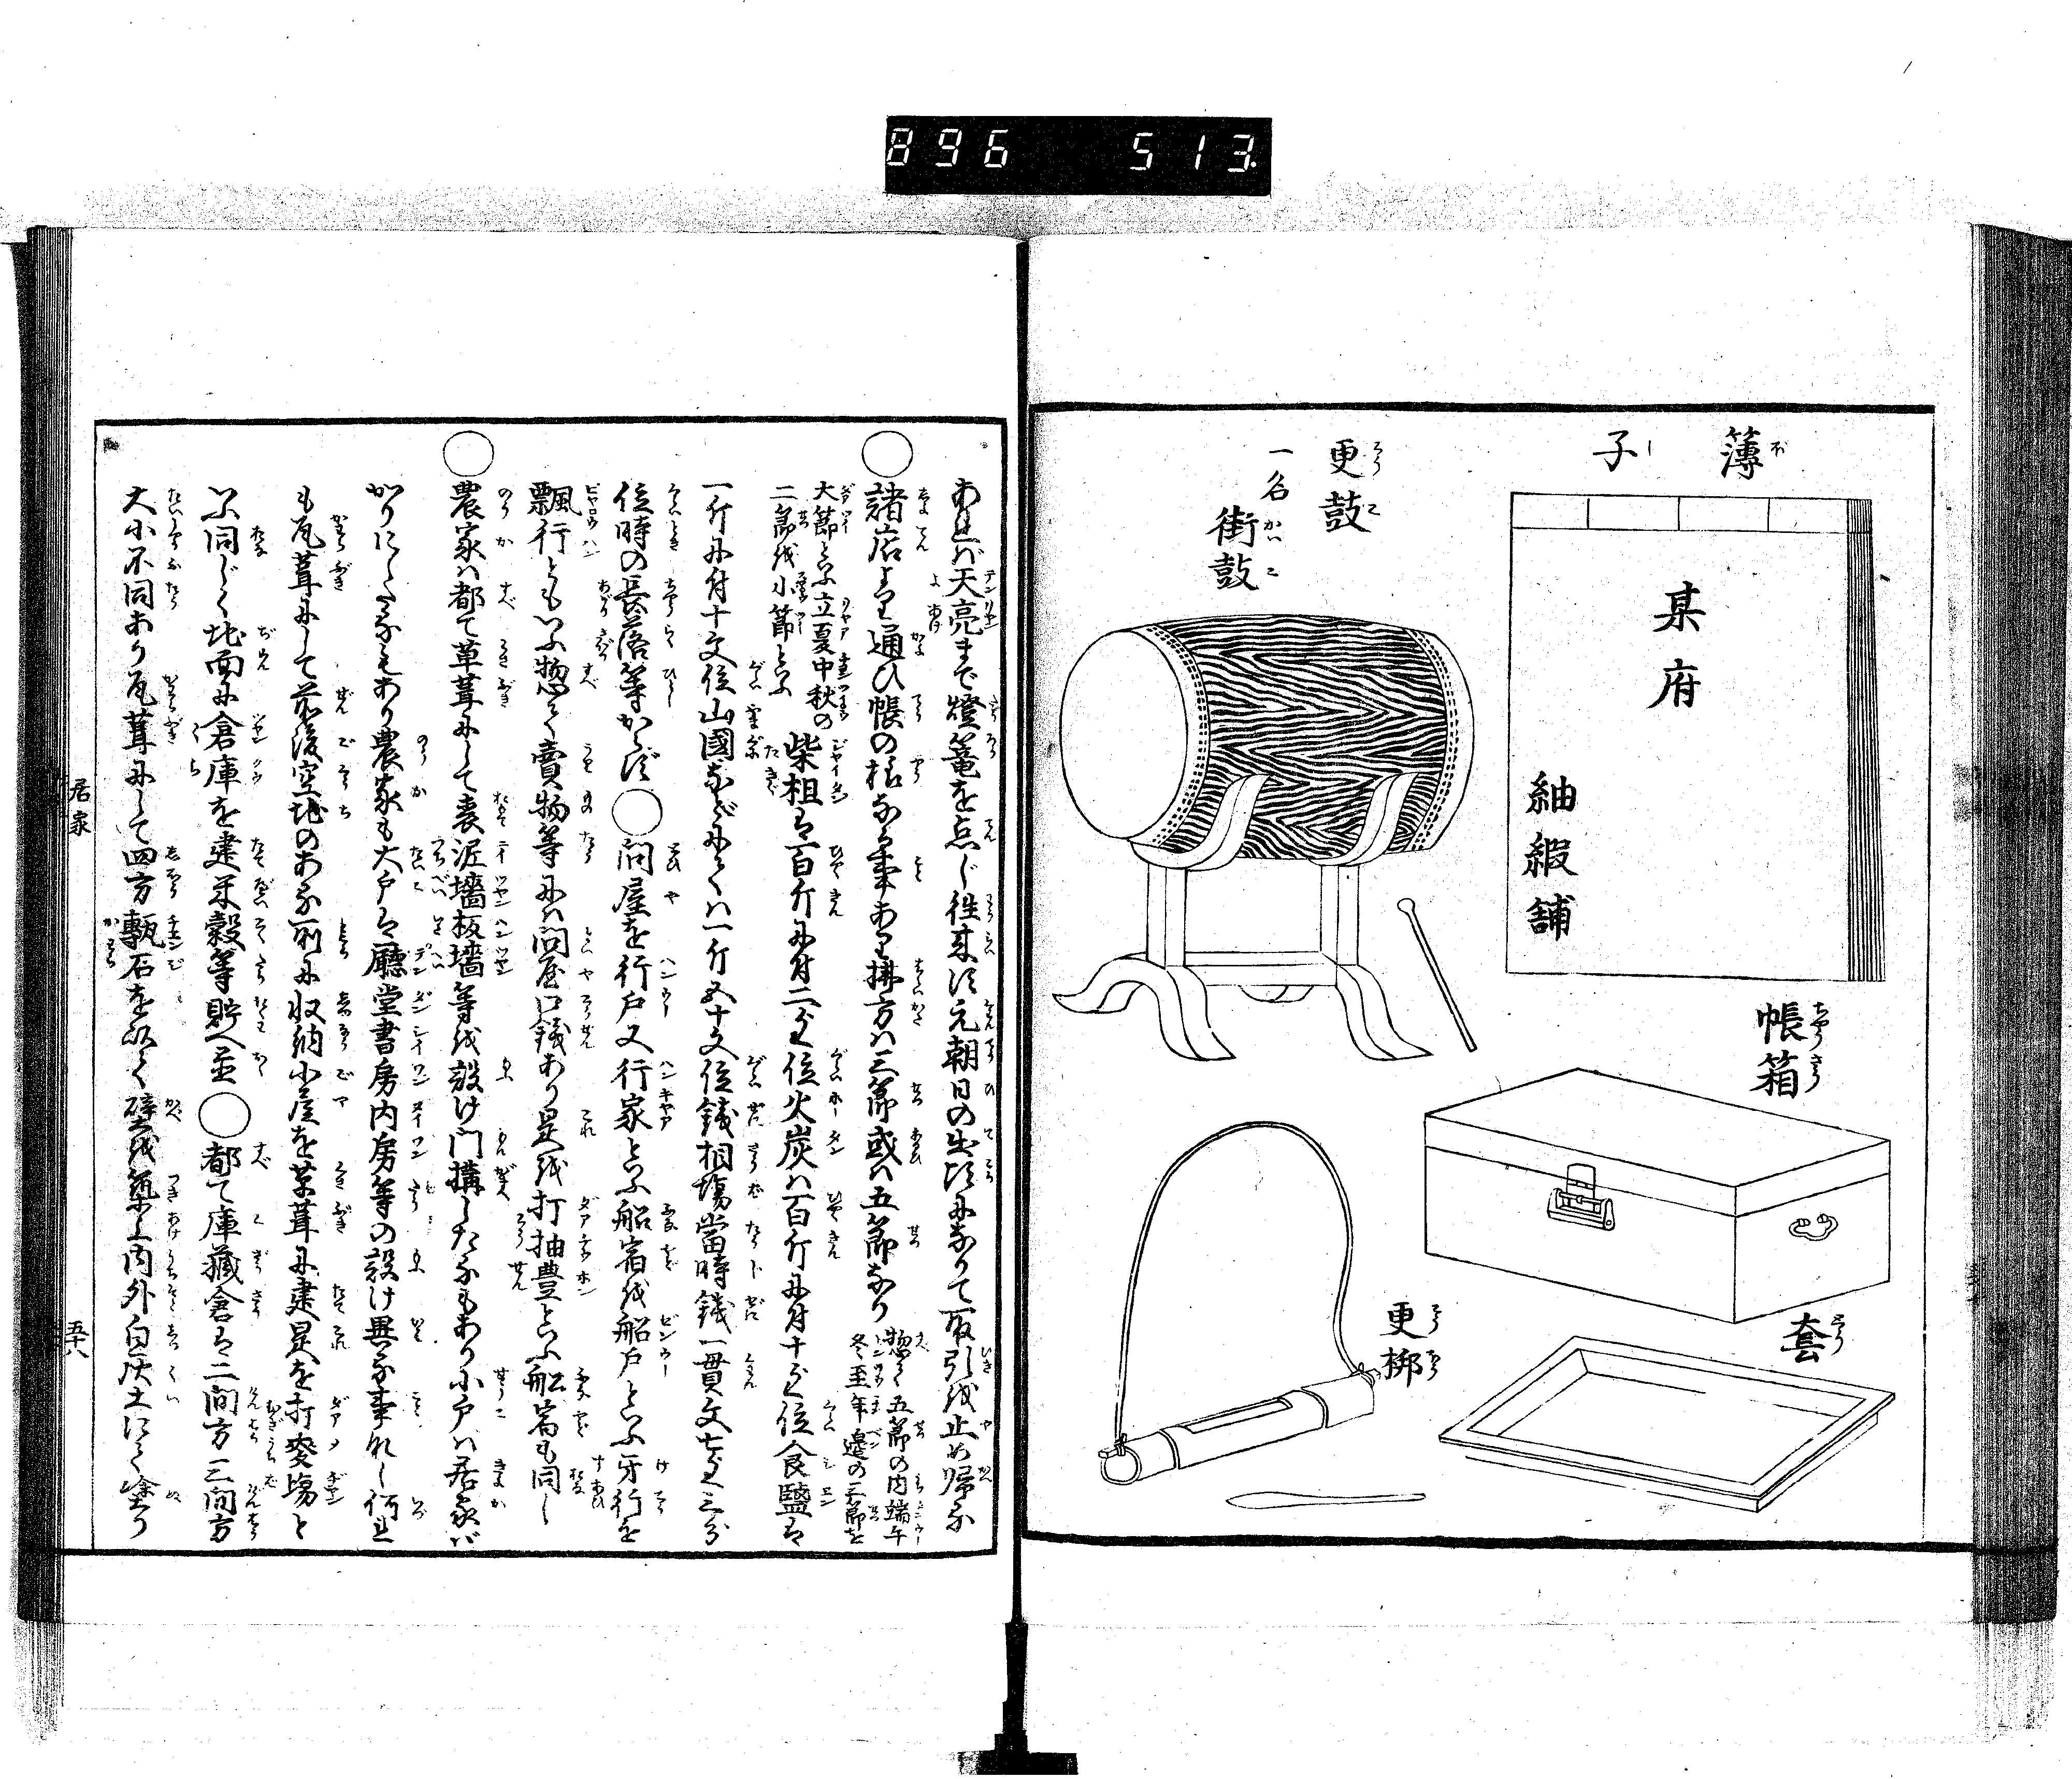 896 513
薄子
某府
紬緞舗
更鼓
一名 街鼓
帳箱
套
更梆
あれバ天亮まで燈篭を点じ往来す元朝日の出頃になりて取引を止め帰る
諸店より通ひ帳の様なる事あり拂方ハ三節或ハ五節なり
惣て五節の内端午
冬至年邊の三節を
大節といふ立夏中秋の
二節を小節といふ
柴担は百斤に付二匁位火炭ハ百斤に付十匁位食鹽は
一斤に付十文位山國などにてハ一斤五十文位銭相場當時銭一貫文七匁三分
位時の長落等かハらず
問屋を行戸又行家といふ船宿を船戸といふ牙行を
飄行ともいふ惣て賣物等にハ問屋口銭あり是を打抽豊といふ船宿も同し
農家ハ都て草葺にして裏泥墻板墻等を設け門構したるもあり小戸ハ居家バ
かりにしたるもあり農家も大戸は廳堂書房内房等の設け異る事なし何れ
も瓦葺にして前後空地のある所に収納小屋を草葺に建是を打麥場と
いふ同じく地面に倉庫を建米穀等貯へ置
都て庫藏倉は二間方三間方
大小不同あり瓦葺にして四方甎石を以て壁を築上内外白灰土にて塗り
居家
五十八